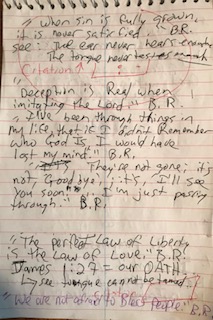 " When sin is fully grown,
it is never satisfied. " B.R.
see: The ear never hears enough
The tongue never tastes enough
Citation ↑
" Deception is Real when
imitating the Lord " B.R.
" I've been through things in
my life, that if I didn't Remember
who God Is I would have
lost my mind." B.R.
" They're not gone; it's
not, Goodbye; it's, I'll see
you soon. I'm just passing
through." B.R.
"The perfect Law of Liberty
is the Law of Love." B.R.
James 1:27 = our OATH
↳ see tongue cannot be tamed
"We are not afraid to Black People" B.R.